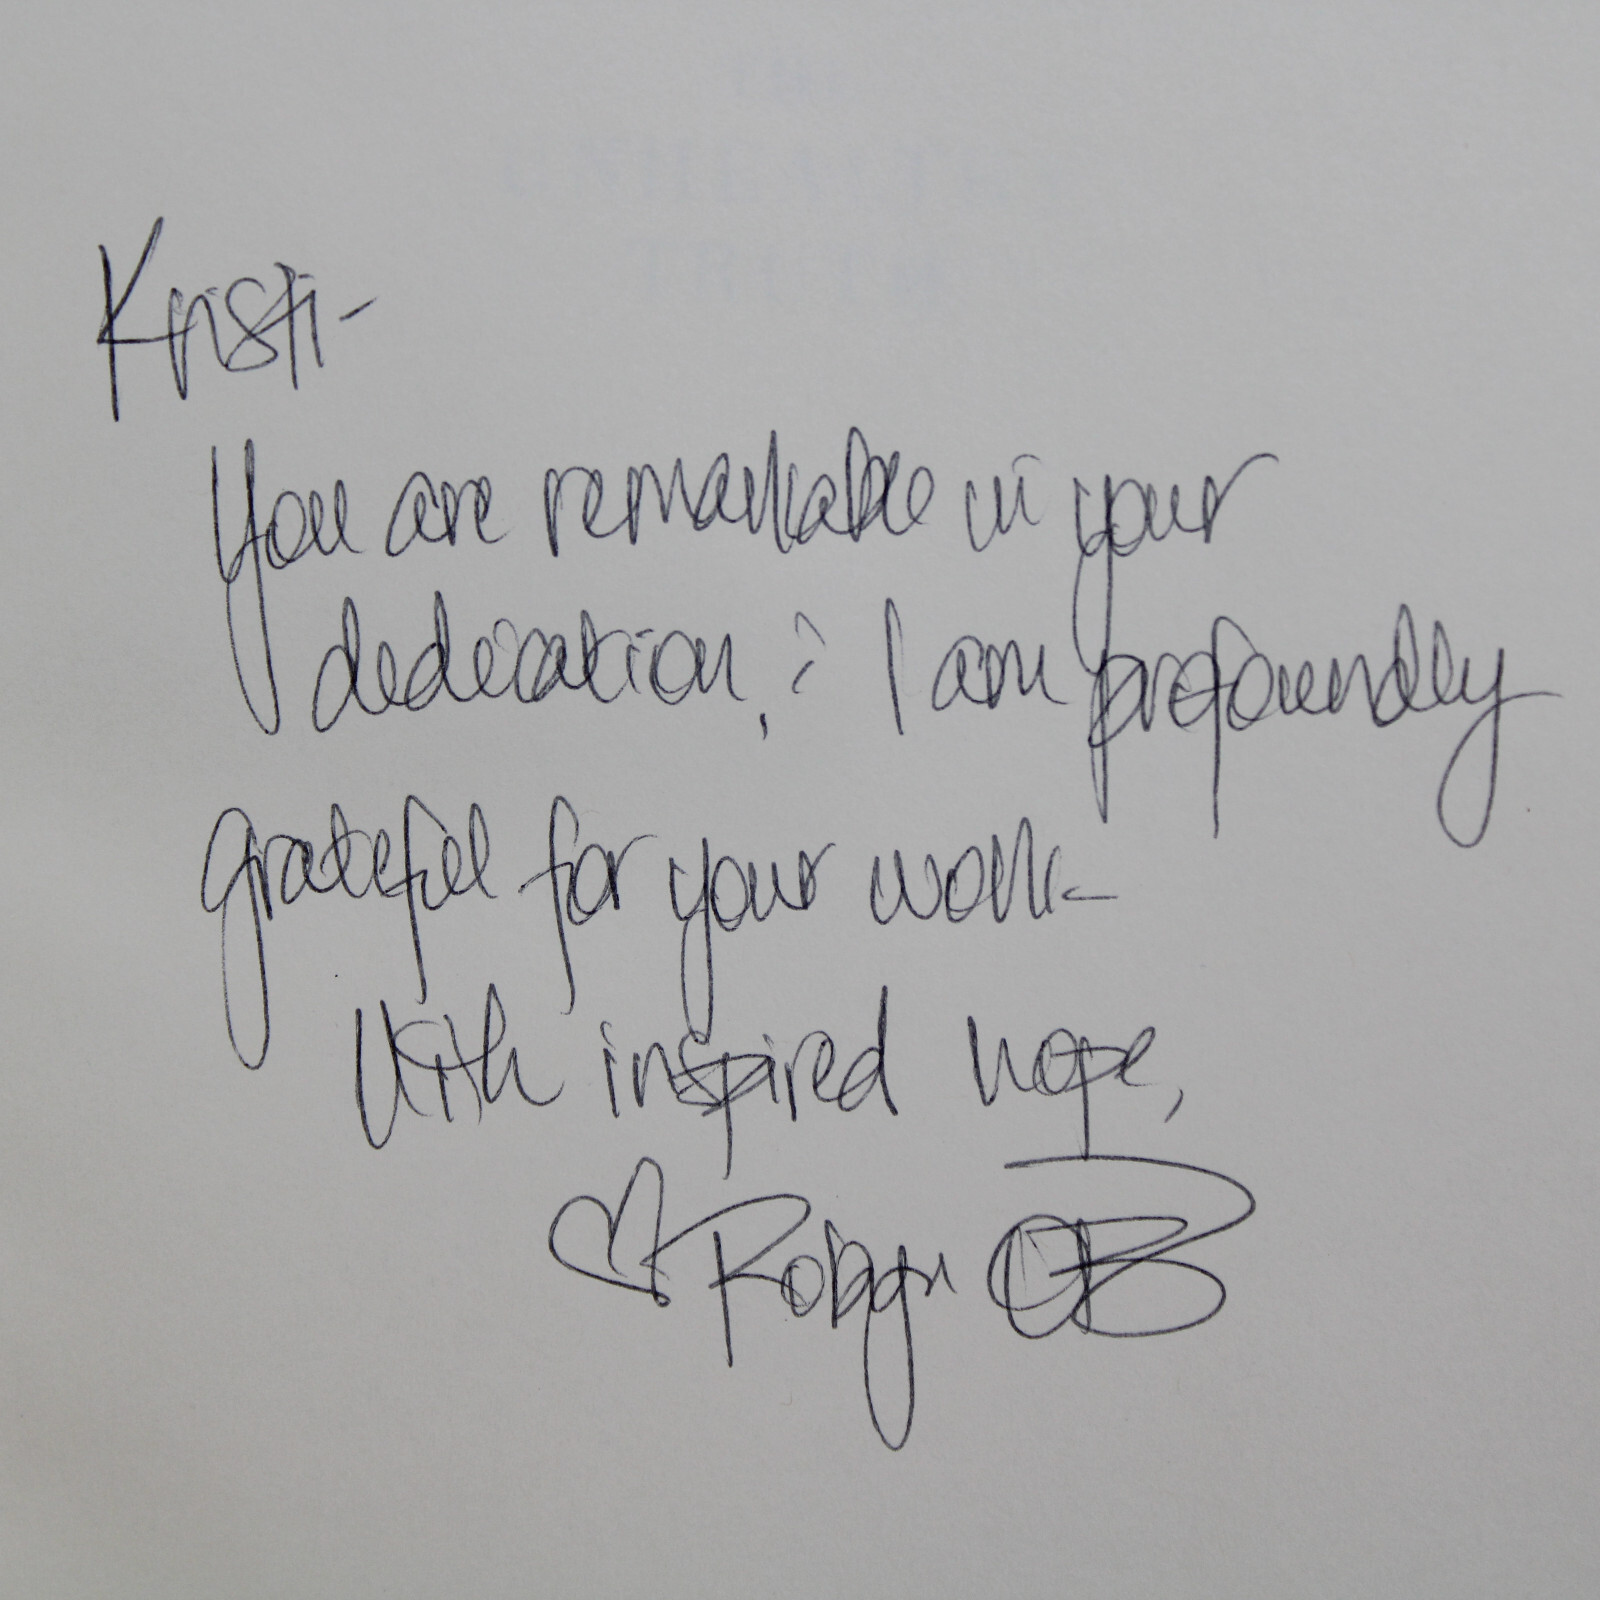 Kristi-
You are remarkable in your
dedication, & I am profoundly
grateful for your work-
With inspired hope,
♡ Robyn OB